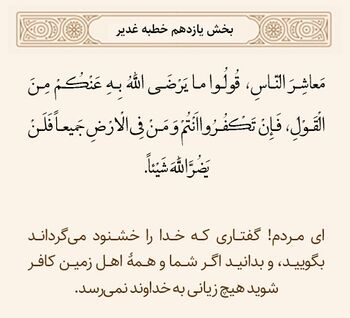 بخش یازدهم خطبه غدیر
مَعاشِرَ النّاسِ، قُولُوا ما یَرْضَی اللهُ بِهِ عَنْکُمْ مِنَ
الْقَوْلِ، فَإِنْ تَکْفُرُوا أَنْتُمْ وَ مَنْ فِی الْاَرْضِ جَمیعاً فَلَنْ
یَضُرَّ اللهَ شَیْئاً.
ای مردم! گفتاری که خدا را خشنود می‌گرداند
بگویید، و بدانید اگر شما و همهٔ اهل زمین کافر
شوید هیچ زیانی به خداوند نمی‌رسد.